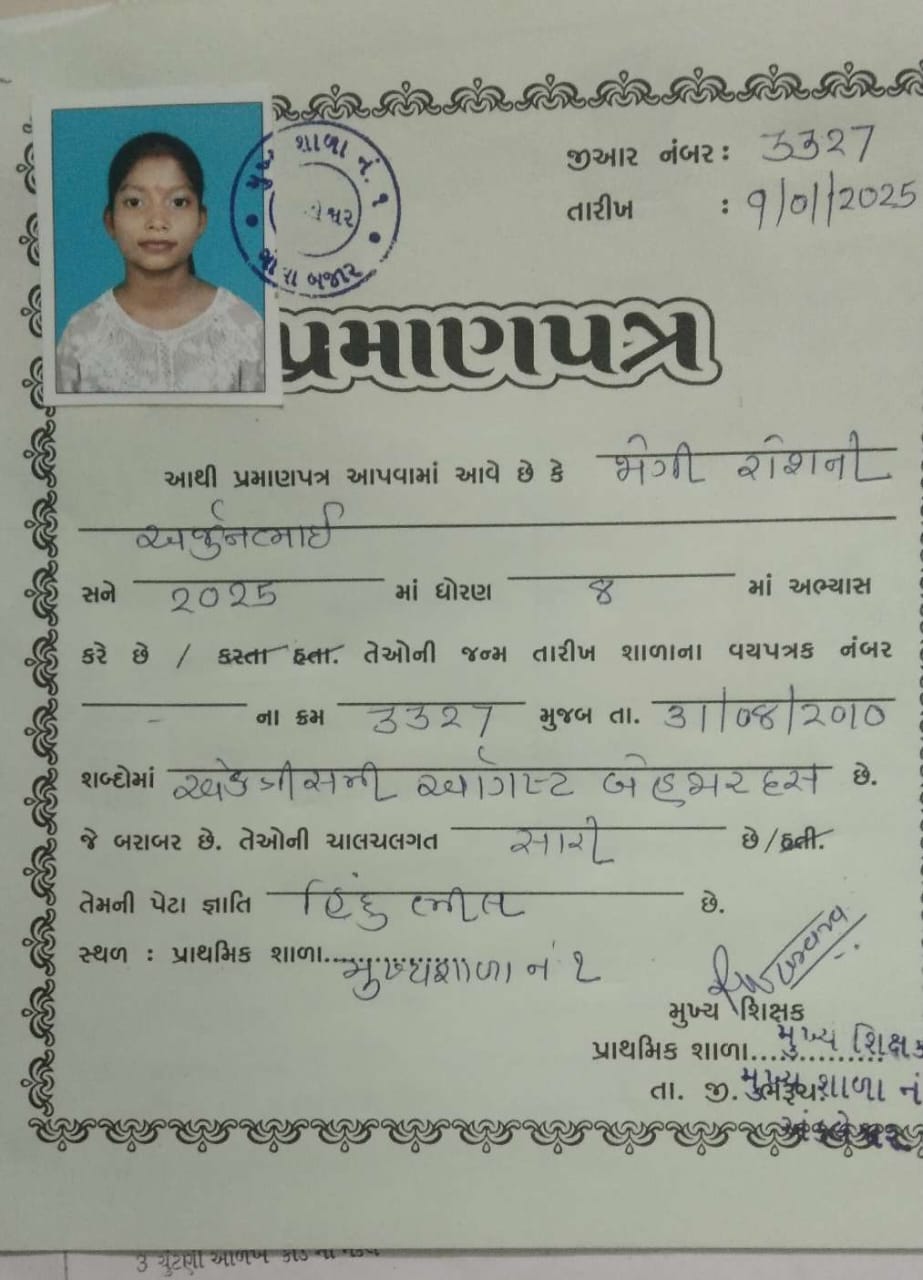 મુખ્ય શાળા નં. ૧
શ્વર
બજાર
જીઆર નંબર : 3327
તારીખ : 9/01/2025
પ્રમાણપત્ર
આથી પ્રમાણપત્ર આપવામાં આવે છે કે ભંગી રોશની
અર્જુનભાઈ
સને 2025 માં ધોરણ 8 માં અભ્યાસ
કરે છે / કરતા હતા. તેઓની જન્મ તારીખ શાળાના વયપત્રક નંબર
- ના ક્રમ 3327 મુજબ તા. 31/08/2010
શબ્દોમાં એકત્રીસમી ઓગસ્ટ બેહજાર દસ છે.
જે બરાબર છે. તેઓની ચાલચલગત સારી છે/હતી.
તેમની પેટા જ્ઞાતિ હિંદુ ભીલ છે.
સ્થળ : પ્રાથમિક શાળા.................. મુખ્યશાળા નં 1
મુખ્ય શિક્ષક
પ્રાથમિક શાળા............... મુખ્ય શિક્ષક
તા. જી. ભરૂચ. મુખ્ય શાળા નં
અંકલેશ્વર
3 ચુંટણી ઓળખ કાર્ડ ની નકલ